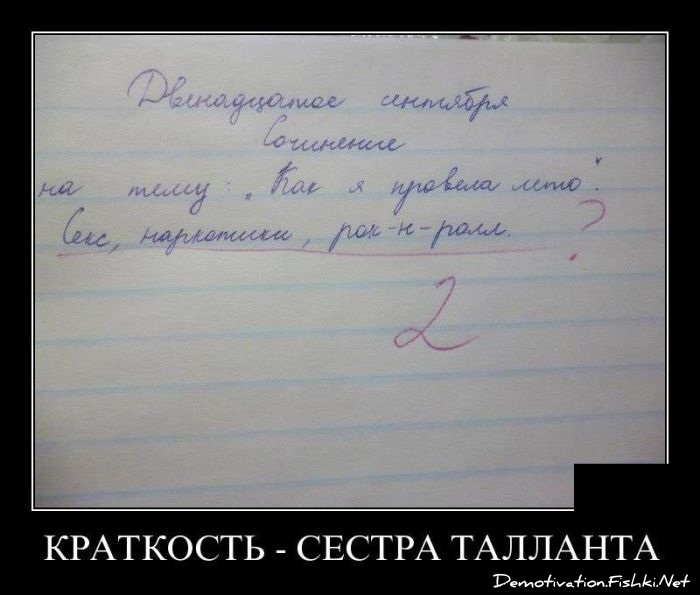 Двенадцатое сентября
Сочинение
на тему: „Как я провела лето".
Секс, наркотики, рок-н-ролл. ?
2
КРАТКОСТЬ - СЕСТРА ТАЛЛАНТА
Demotivation.Fishki.Net